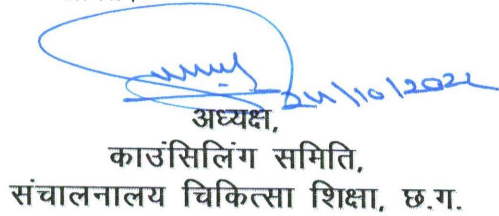 24/10/2022
अध्यक्ष,
काउंसिलिंग समिति,
संचालनालय चिकित्सा शिक्षा, छ.ग.